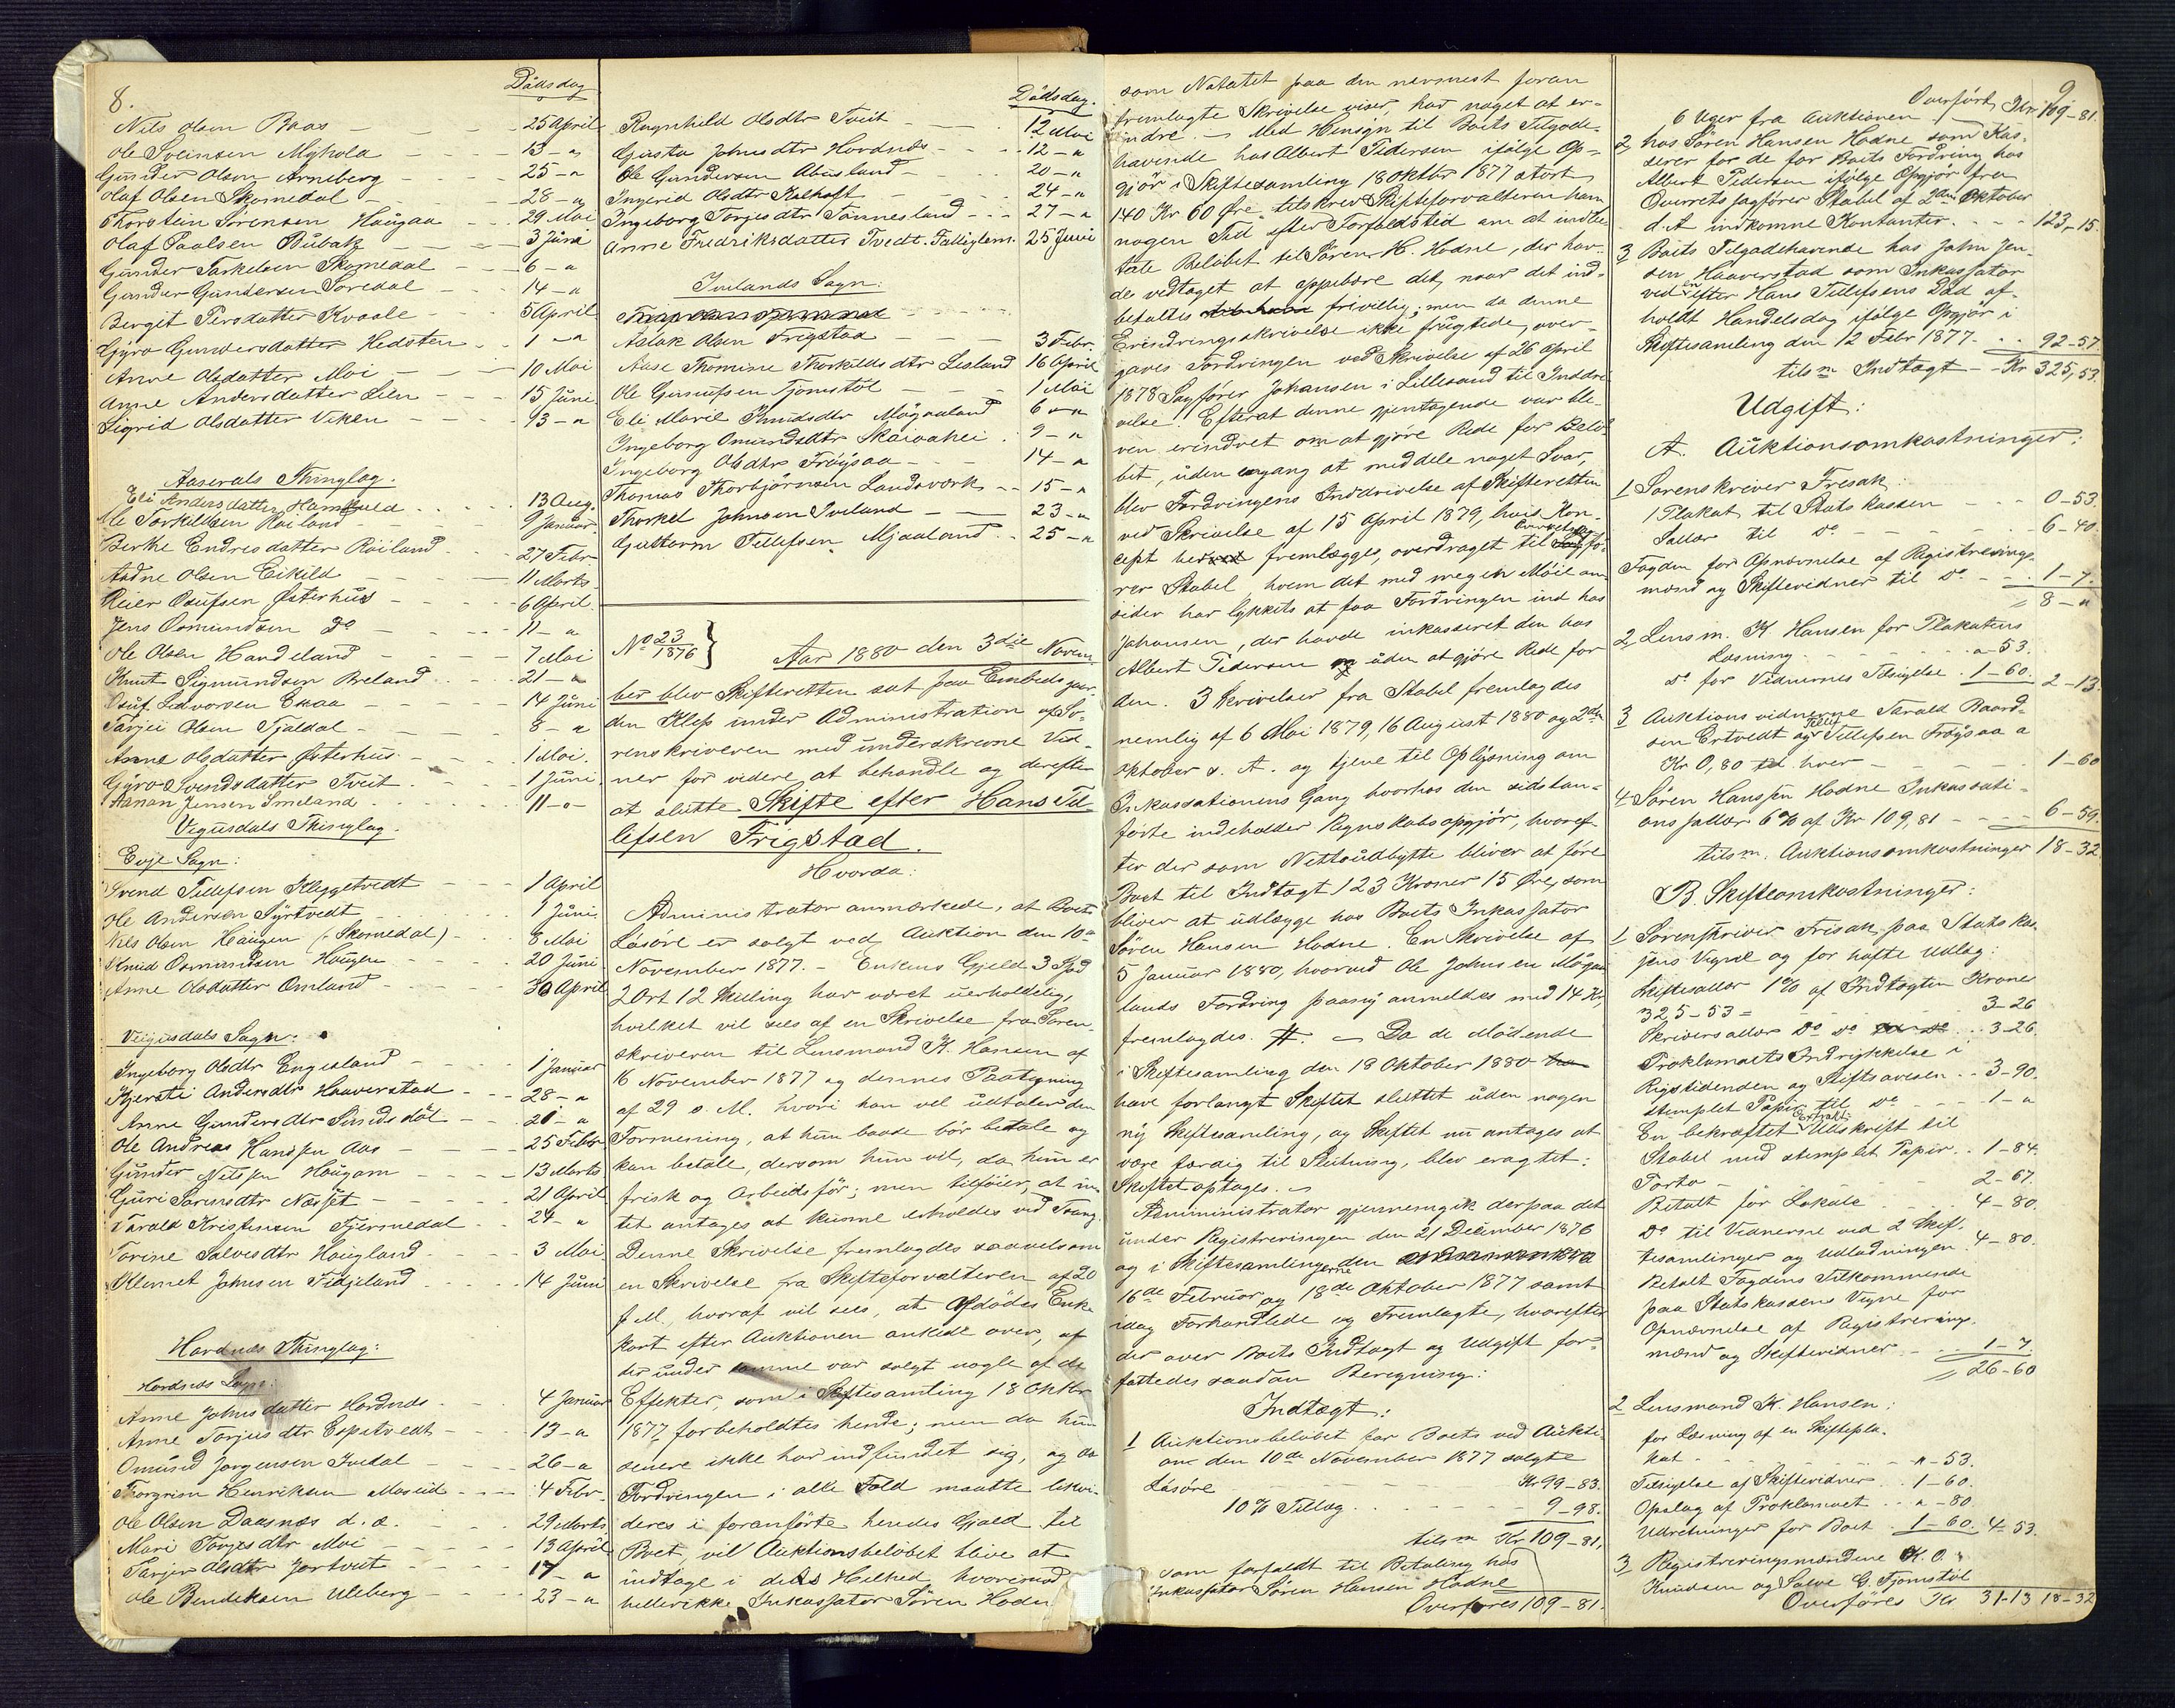 8.
Dödsdag
Nils Olsen Baas - 25 April
Ole Sveinsen Myhold - 13 - "
Gunder Olsen Arneberg - 25 - "
Olaf Olsen Skomedal - 28 - "
Thorstein Sörensen Haugaa - 29 Mai
Olaf Paalsen Bübatz - 3 Juni
Gunder Tarkelsen Skomedal - 6 - "
Gunder Gundersen Soredal - 14 - "
Bergit Persdatter Kvaale - 5 April
Gyro Gundersdatter Hedsten - 1 - "
Anne Olsdatter Moi - 10 Mai
Anne Andersdatter Lien - 15 Juni
Sigrid Olsdatter Viken - 13 - "
Aaserals Thinglag.
Eli Andersdatter Ham - 13 Aug.
Ole Torkildsen Röiland - 9 Januar
Berthe Endresdatter Röiland - 27 Febr.
Aadne Olsen Eikild - 11 Marts
Reier Osufsen Østerhus - 6 April
Jens Osmundsen Do - 11 - "
Ole Olsen Handeland - 7 Mai
Knut Sigmundsen Breland - 21 - "
Osuf Ledvorsen Ekaa - 14 Juni
Tarjei Olsen Tjaldal - 8 - "
Anne Olsdatter Østerhus - 1 Mai.
Gyro Svendsdatter Tveit - 1 Juni
Aanon Jensen Smeland - 11 - "
Vegusdals Thinglag.
Evje Sogn:
Svend Tellefsen Kleggetvedt - 1 April
Ole Andersen Syrtvedt - 1 Juni
Nils Olsen Haugen (Skomedal) - 8 Mai
Knud Osmundsen Haugen - 20 Juni
Anne Olsdatter Omland - 30 April
Veigusdals Sogn:
Ingeborg Olsdtr Engesland - 1 Januar
Kjersti Andersdtr Haaverstad - 28 - "
Anne Gundersdtr Sindsdöl - 21 - "
Ole Andreas Hansen Aas - 25 Febr
Gunder Nilssen Haugom - 13 Marts
Guri Sörensdtr Næsset - 21 April
Tarald Kristensen Fjermedal - 24 - "
Torine Salvesdtr Haugland - 3 Mai
Klemet Johnsen Fidjeland - 14 Juni
Hordnæs Thinglag:
Hordnæs Sogn:
Anne Johnsdatter Hordnæs - 4 Januar
Anne Torjusdtr Espetvedt - 13 - "
Omund Jorgensen Ivedal - 26 - "
Thorgrim Henriksen Moseid - 4 Febr.
Ole Olsen Daasnæs d. æ. - 29 Marts
Mari Torjesdtr Moi - 13 April
Tarjer Olsdtr Jortveit - 17 - "
Ole Bendiksen Uleberg - 23 - "
Dödsdag.
Ragnhild Olsdtr Tveit - 12 Mai
Gusta Johnsdtr Hordnæs - 12 - "
Ole Gundersen Abusland - 20 - "
Ingerid Olsdtr Kalhoft - 24 - "
Ingeborg Torjesdtr Tonnesland - 27 - "
Anne Fredriksdatter Tvedt. Fattiglem. 25 Juni
Ivelands Sogn:
Aslak Olsen Frigstad - 3 Febr.
Aase Thomine Thorkildsdtr Lisland 16 April
Ole Gunufsen Tjomstöl - 1 Mai
Eli Marie Knudsdtr Mögaaland 6 - "
Ingeborg Omundsdtr Skaiaahei 9 - "
Ingeborg Olsdtr Fröysaa - 14 - "
Thomas Thorbjörnsen Landsverk - 15 - "
Thorkel Johnsen Iveland - 23 - "
Guttorm Tellefsen Mjaaland - 25 - "
No 23/1876 } Aar 1880 den 3die Novem-
ber blev Skifteretten sat paa Embedsgaar-
den Klep under Administration af So-
renskriveren med underskrevne Vid-
ner for videre at behandle og derefter
at slutte Skifte efter Hans Til-
lefsen Frigstad.
Hvorda:
Administrator anmærkede, at Boets
Lösöre er solgt ved Auktion den 10de
November 1877. - Enkens Gjeld 3 Spd
2 Ort 12 Skilling har været uerholdelig,
hvilket vil sees af en Skrivelse fra Soren-
skriveren til Lensmand K. Hansen af
16 November 1877 og dennes Paategning
af 29 s. M. hvori han vel udtaler den
Formening, at hun baade bör betale og
kan betale, dersom hun vil, da hun er
frisk og Arbeidsför; men tilföier, at in-
tet antages at kunne erholdes ved Tvang.
Denne Skrivelse fremlagdes saavelsom
en Skrivelse fra Skifteforvalteren af 20
f. M., hvoraf vil sees, at Afdödes Enke
kort efter Auktionen ankede over, at
der under samme var solgt nogle af de
Effekter, som i Skiftesamling 18 Oktbr
1877 forbeholdtes hende; men da hun
senere ikke har indfundet sig, og da
Fordringen i alle Fald maatte likvi-
deres i foranförte hendes Gjæld til
Boet, vil Auktionsbelöbet blive at
indtage i dets Helhed, hvorimod
hellerikke Inkassator Sören Hodn
som Notatet paa den nærmest foran
fremlagte Skrivelse viser, har noget at er-
indre. - Med Hensyn til Boets Tilgode-
havende hos Albert Pedersen ifölge Op-
gjör i Skiftesamling 18 Oktbr 1877 stort
140 Kr 60 Øre, tilskrev Skifteforvalteren ham
nogen Tid efter Forfaldstid om at indbe-
tale Belöbet til Sören H. Hodne, der hav-
de vedtaget at oppebære det, naar det ind-
betaltes frivillig; men da denne
Erindringsskrivelse ikke frugtede, over-
gaves Fordringen ved Skrivelse af 26 April
1878 Sagförer Johansen i Lillesand til Inddri-
velse. Efterat denne gjentagende var ble-
ven erindret om at gjöre Rede for Belö-
bet, uden engang at meddele noget Svar,
blev Fordringens Inddrivelse af Skifteretten
ved Skrivelse af 15 April 1879, hvis Kon-
cept her fremlægges, overdraget til Overretssagfö-
rer Stabel hvem det med megen Möie om-
sider har lykkets at faa Fordringen ind hos
Johansen, der havde inkasseret den hos
Albert Pedersen uden at gjöre Rede for
den. 3 Skrivelser fra Stabel fremlagdes
nemlig af 6 Mai 1879, 16 August 1880 og 2den
Oktober d. A. og tjene til Oplysning om
Inkassationens Gang hvorhos den sidstan-
förte indeholder Regnskabsopgjör, hvoref-
ter der som Nettoudbytte bliver at före
Boet til Indtægt 123 Kroner 15 Øre, som
bliver at udlægge hos Boets Inkassator
Sören Hansen Hodne. En Skrivelse af
5 Januar 1880, hvorved Ole Johnsen Mögaa-
lands Fordring paany anmeldes med 14 Kr
fremlagdes. #. - Da de Mödende
i Skiftesamling den 18 Oktober 1880
have forlangt Skiftet sluttet uden nogen
ny Skiftesamling, og Skiftet nu antages at
være færdig til Slutning, blev eragtet:
Skiftet optages. -
Administrator gjennemgik derpaa det
under Registreringen den 21 December 1876
og i Skiftesamlingerne den
16de Februar og 18de Oktober 1877 samt
idag Forhandlede og Fremlagte, hvorefter
der over Boets Indtægt og Udgift for-
fattedes saadan Beregning:
Indtægt:
1 Auktionsbelöbet for Boets ved Aukti-
on den 10de November 1877 solgte
Lösöre Kr 99-83.
10% Tillæg 9-98.
tilsm Kr 109-81.
som forfaldt til Betaling hos
Inkassator Sören Hansen Hodne
Overföres 109-81.
9
Overfört Kr 109-81.
6 Uger fra Auktionen
2 hos Sören Hansen Hodne som Kas-
serer for de for Boets Fordring hos
Albert Pedersen ifölge Opgjör fra
Overretssagförer Stabel af 2den Oktober
d. A. indkomne Kontanter - 123-15.
3 Boets Tilgodehavende hos John Jen-
sen Haaverstad som Inkassator
ved en efter Hans Tillefsens Död af-
holdt Handelsdag ifölge Opgjör i
Skiftesamling den 12 Febr 1877. 92-57.
tilsm Indtægt - Kr 325,53
Udgift:
A. Auktionsomkostninger:
1 Sorenskriver Frisak:
1 Plakat til Statskassen - 0-53.
Sallær til do - 6-40.
Fogden for Opnævnelse af Registrerings-
mænd og Skiftevidner til do - 1-7.
8-"
2 Lensm. K Hansen for Plakatens
Læsning "-53.
do for Vidnernes Tilsigelse 1-60. 2-13.
3 Auktionsvidnerne Tarald Baard-
sen Ertvedt og Tellef Tellefsen Fröysaa a
Kr 0,80 hver 1-60
4 Sören Hansen Hodne Inkassati-
onssallær 6% af Kr 109,81 - 6-59.
tilsm. Auktionsomkostninger 18-32
B. Skifteomkostninger:
1 Sorenskriver Frisak paa Statskas-
sens Vegne og for hafte Udlæg:
Skiftesallær 1% af Indtægten Kroner
325-53 = 3-26
Skriversallær do do 3-26.
Proklamaets Indrykkelse i
Rigstidenden og Stiftsavisen 3-90.
stemplet Papir til do 1-"
En bekræftet Extrakt-Udskrift til
Stabel med stemplet Papir 1-84.
Porto - 2-67.
Betalt for Lokale 4-80.
do til Vidnerne ved 2 Skif-
tesamlinger og Udlodningen 4-80.
Betalt Fogdens Tilkommende
paa Statskassens Vegne for
Opnævnelse af Registrerings-
mænd og Skiftevidner 1-7.
26-60
2 Lensmand K. Hansen:
for Læsning af en Skiftepla-
kat "-53.
Tilsigelse af Skiftevidner 1-60.
Opslag af Proklamaet "-80.
Udretninger for Boet 1-60. 4-53.
3 Registreringsmændene K. O.
Knudsen og Salve G. Tjomstöl
Overföres Kr 31-13 18-32